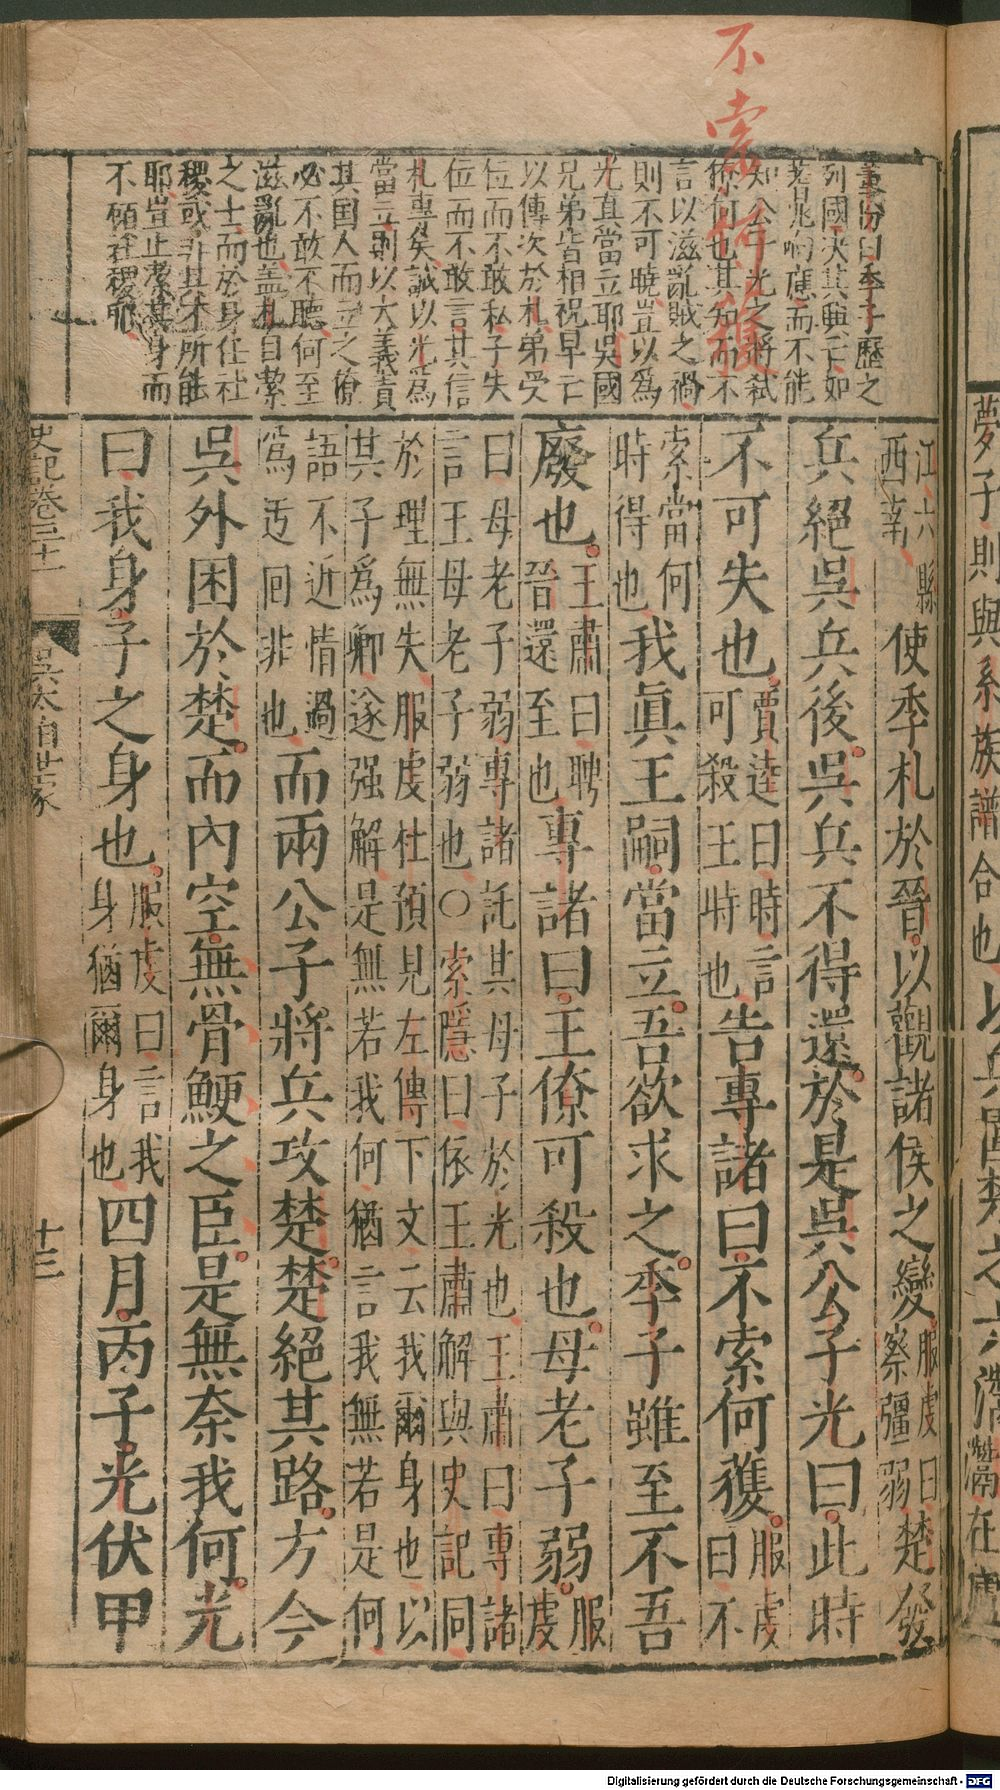 不索何獲
列國決其興亡如
蓍龜響應而不能
知公子光之將弒
僚何也其知而不
言以滋亂賊之禍
則不可曉豈以爲
光眞當立耶吳國
兄弟皆相祝早亡
以傳次於札弟受
位而不敢私子失
位而不敢言其信
札專矣誠以光爲
當立則以大義責
其国人而立之僚
必不敢不聽何至
滋亂也盖札自潔
之士而於身任社
稷或非其才所能
耶豈止潔其身而
不顧社稷耶
江六縣
西南
使季札於晉以觀諸侯之變
服虔曰
察彊弱
楚發
兵絕吳兵後吳兵不得還於是吳公子光曰此時
不可失也
賈逵曰時言
可殺王時也
告專諸曰不索何獲
服虔
曰不
索當何
時得也
我眞王嗣當立吾欲求之季子雖至不吾
廢也
王肅曰聘
晉還至也
專諸曰王僚可殺也母老子弱
服
虔
曰母老子弱專諸託其母子於光也王肅曰專諸
言王母老子弱也○索隱曰依王肅解與史記同
於理無失服虔杜預見左傳下文云我爾身也以
其子爲卿遂强解是無若我何猶言我無若是何
語不近情過
爲迃回非也
而兩公子將兵攻楚楚絕其路方今
吳外困於楚而內空無骨鯁之臣是無奈我何光
曰我身子之身也
服虔曰言我
身猶爾身也
四月丙子光伏甲
史記卷三十一
吳太伯世家
十三
夢子則與系族譜合也
Digitalisierung gefördert durch die Deutsche Forschungsgemeinschaft - DFG